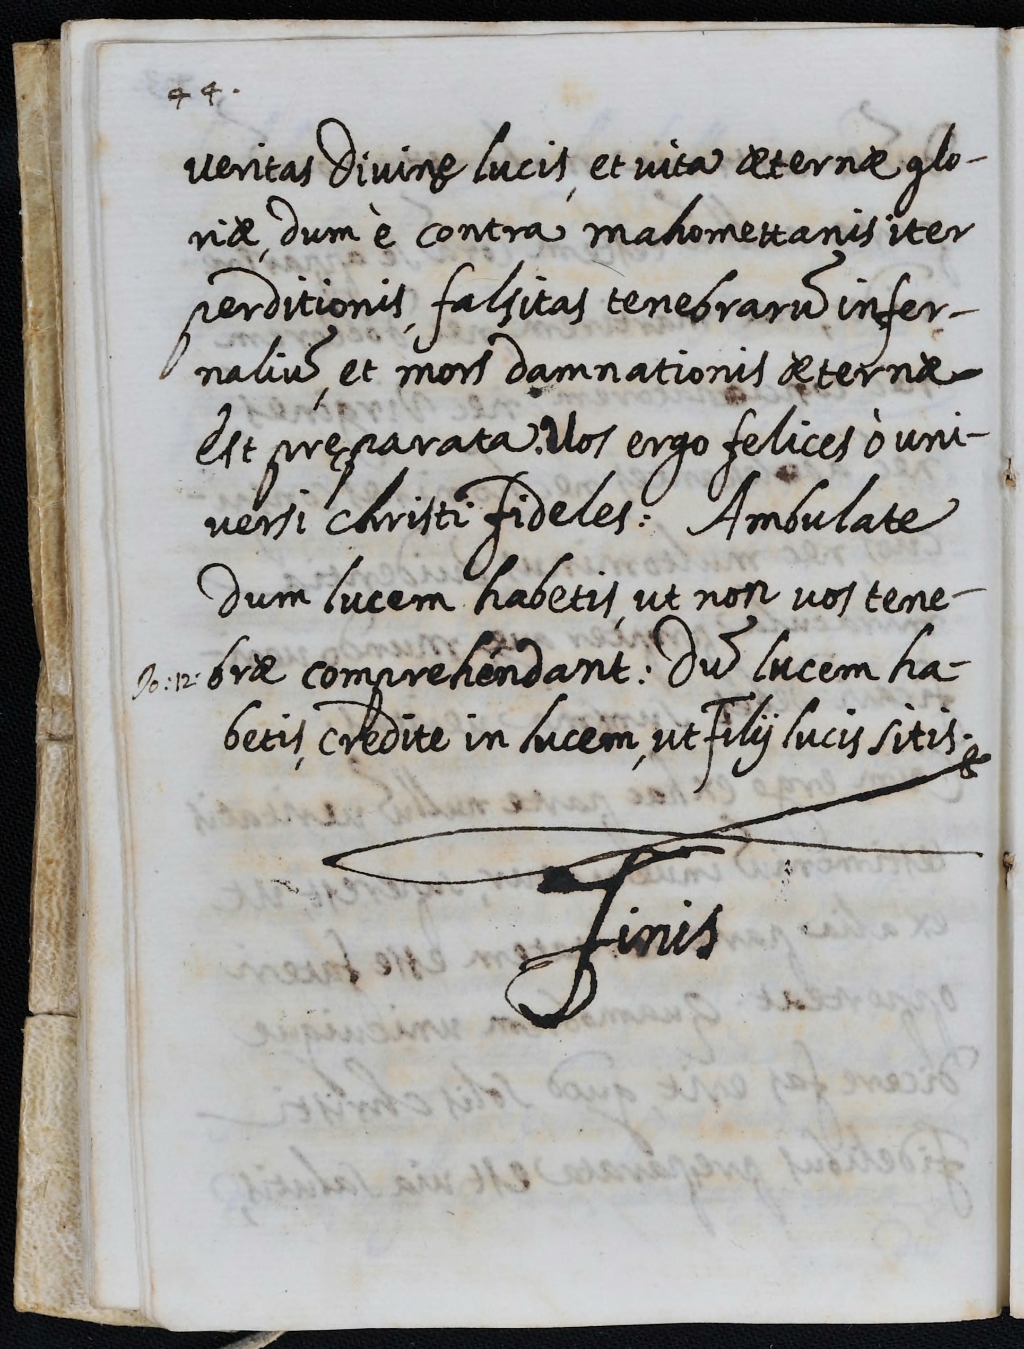 44.
veritas Divinę lucis, et vita æternæ glo-
riæ, dum è contra mahomettanis iter
perditionis, falsitas tenebrarũ infer-
naliũ, et mors damnationis æternæ
est pręparata. Vos ergo felices ò uni-
versi christi fideles: Ambulate
Dum lucem habetis, ut non vos tene-
Jo: 12: bræ comprehendant: Dũ lucem ha-
betis, credite in lucem, ut filij lucis sitis.
Finis